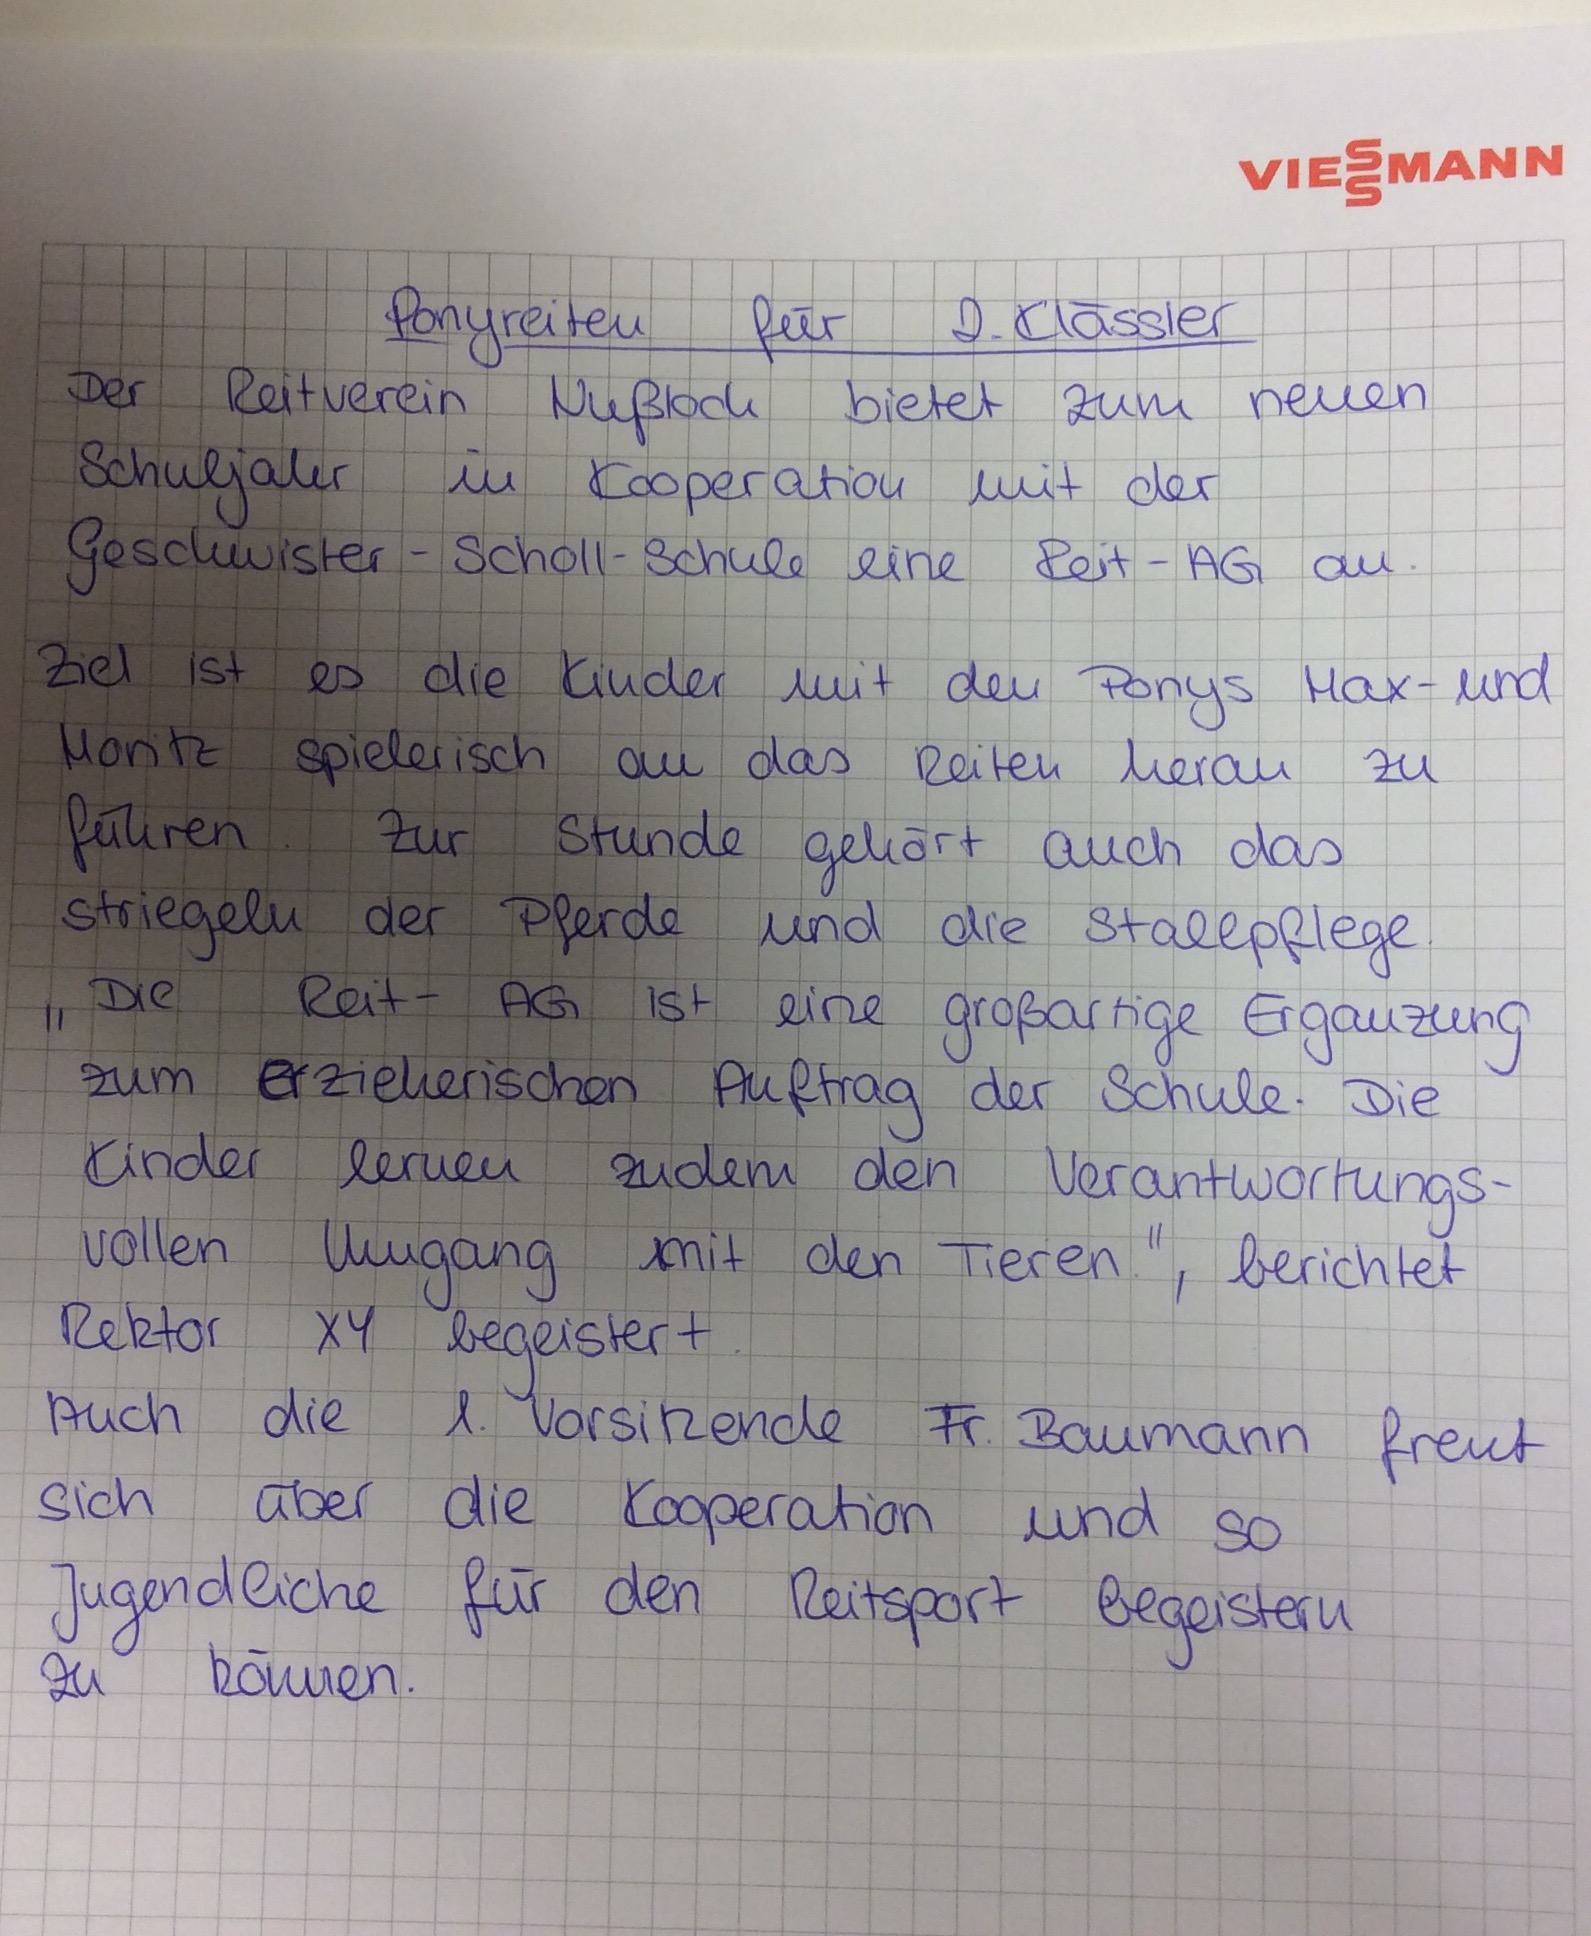 VIESSMANN
Ponyreiten für 2. Klässler
Der Reitverein Nußloch bietet zum neuen
Schuljahr in Kooperation mit der
Geschwister-Scholl-Schule eine Reit-AG an.
Ziel ist es die Kinder mit den Ponys Max- und
Moritz spielerisch an das Reiten heran zu
führen. Zur Stunde gehört auch das
striegeln der Pferde und die Stallpflege.
„Die Reit-AG ist eine großartige Ergänzung
zum erzieherischen Auftrag der Schule. Die
Kinder lernen zudem den Verantwortungs-
vollen Umgang mit den Tieren.", berichtet
Rektor XY begeistert.
Auch die 1. Vorsitzende Fr. Baumann freut
sich über die Kooperation und so
Jugendliche für den Reitsport begeistern
zu können.